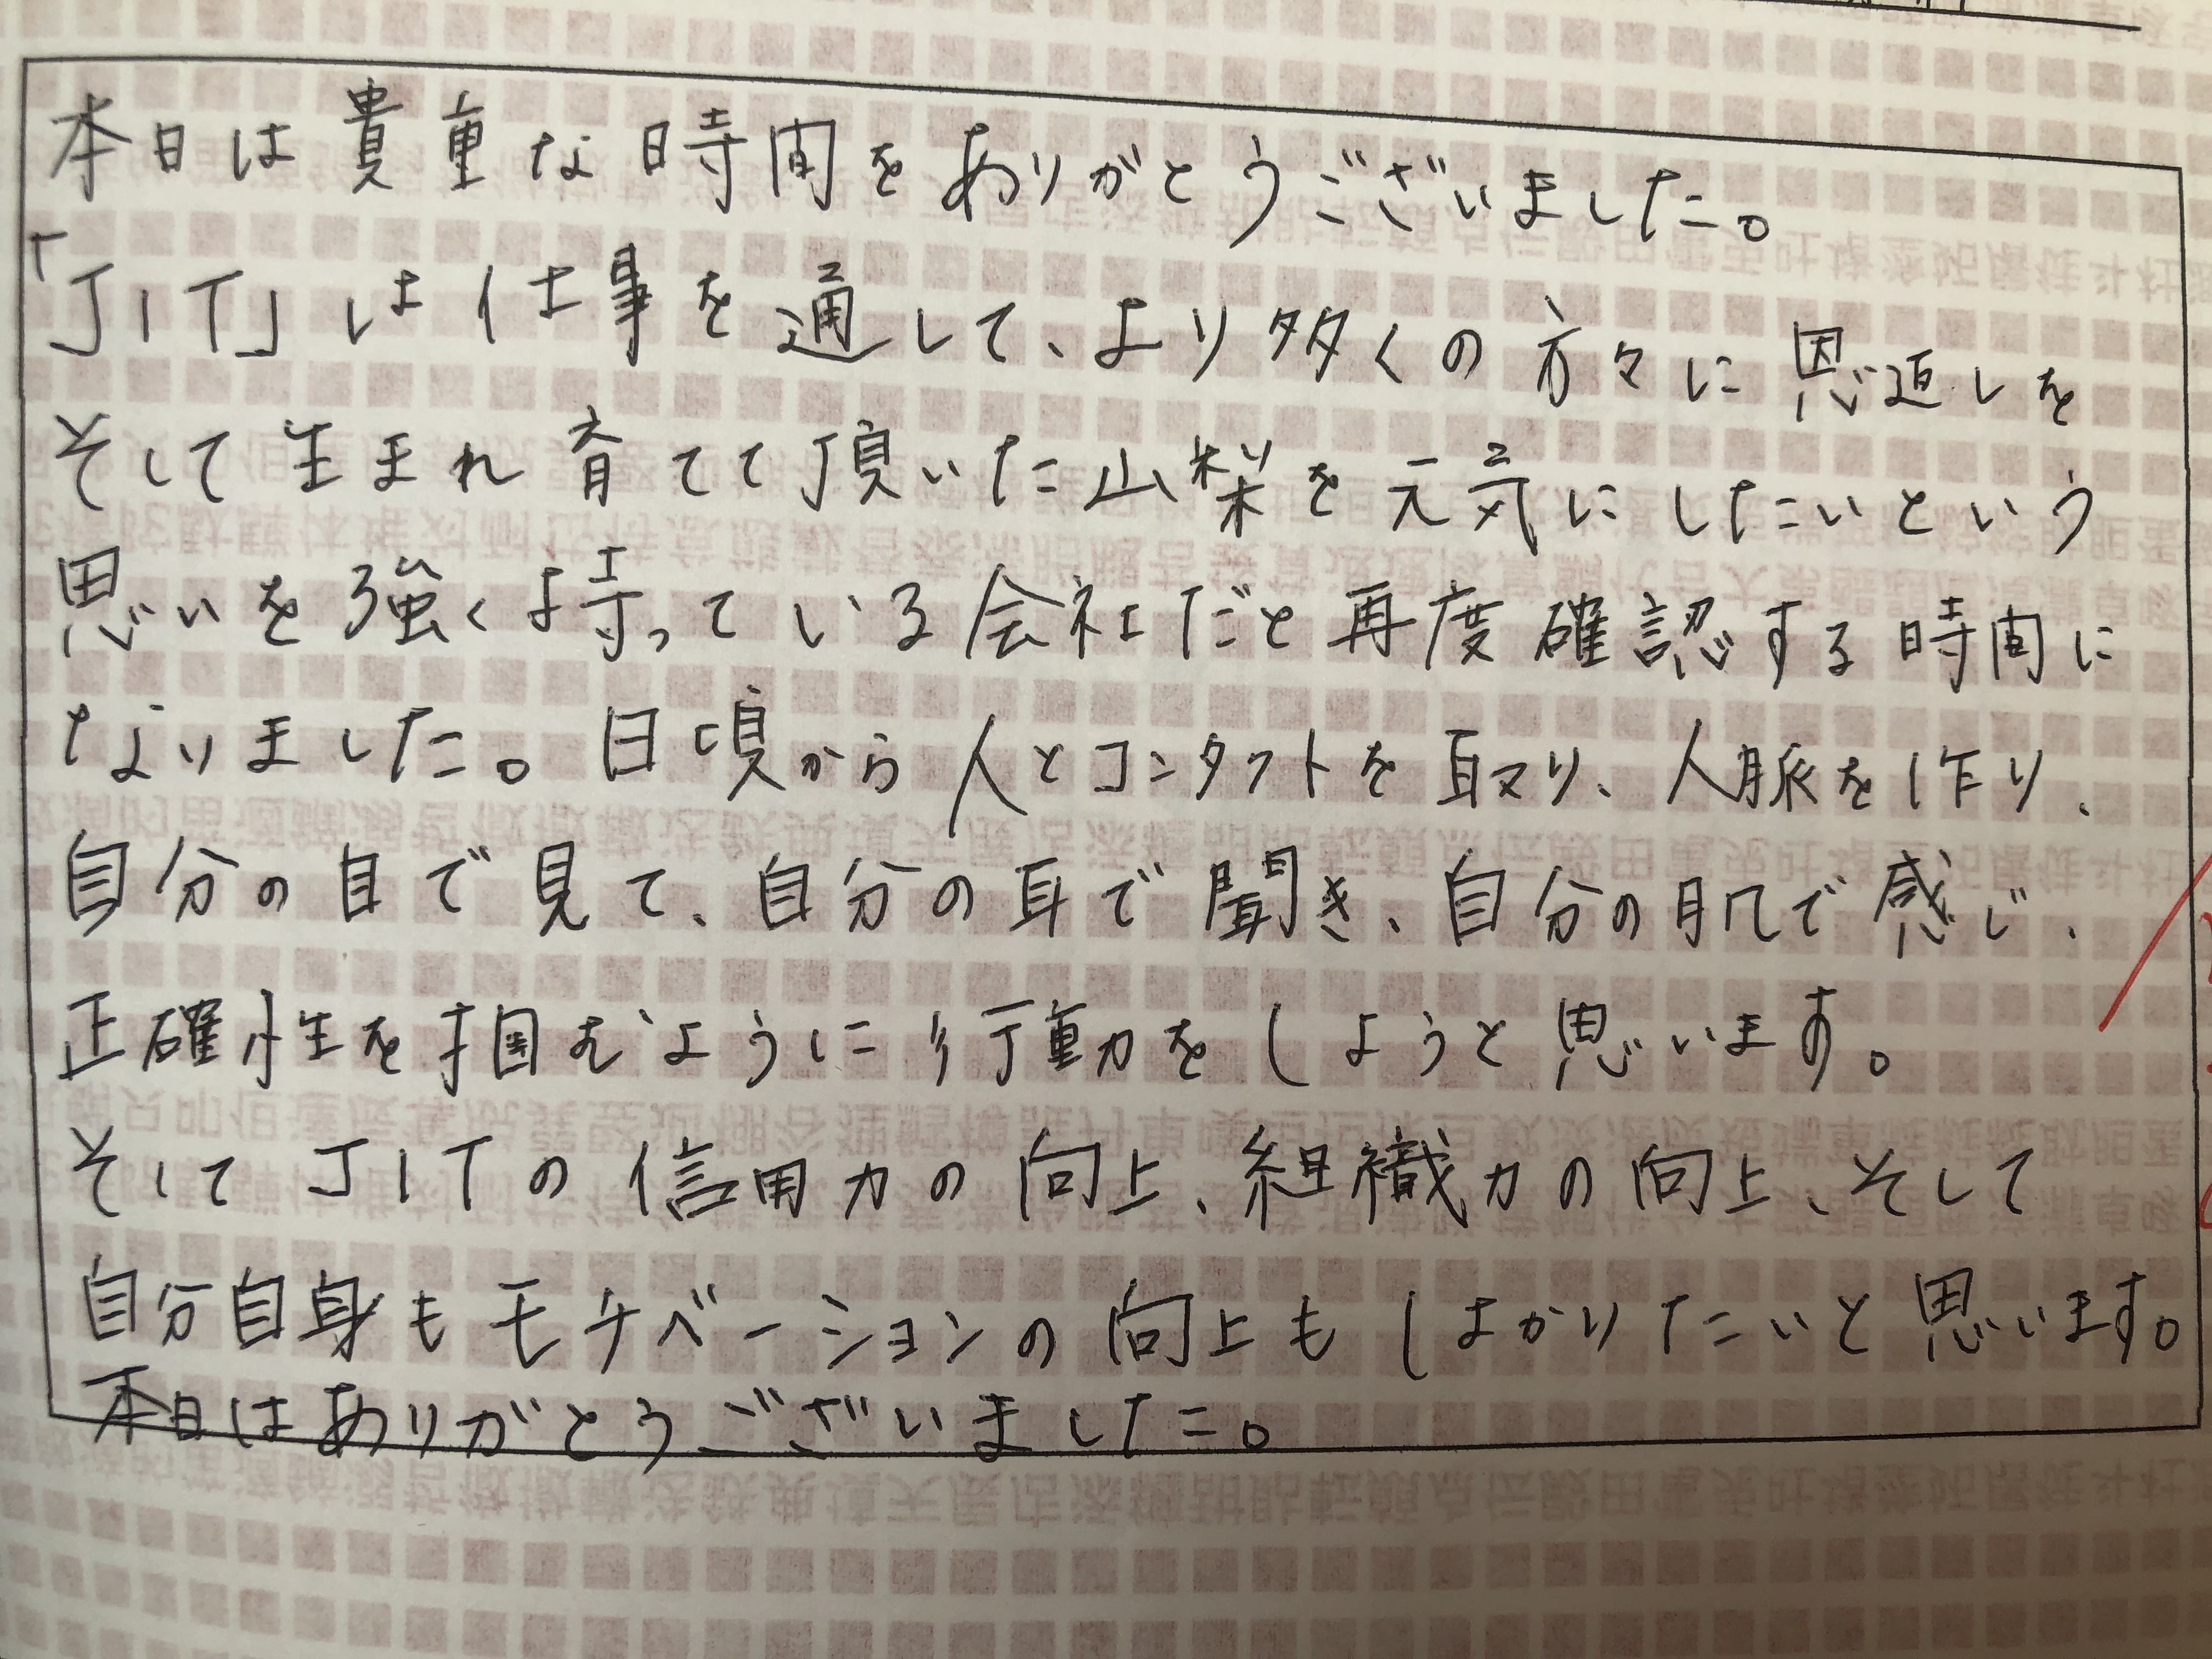 本日は貴重な時間をありがとうございました。
「JIT」は仕事を通して、より多くの方々に恩返しを
そして生まれ育てて頂いた山梨を元気にしたいという
思いを強く持っている会社だと再度確認する時間に
なりました。日頃から人とコンタクトを取り、人脈を作り、
自分の目で見て、自分の耳で聞き、自分の肌で感じ、
正確性を掴むように行動をしようと思います。
そしてJITの信用力の向上、組織力の向上、そして
自分自身もモチベーションの向上もはかりたいと思います。
本日はありがとうございました。